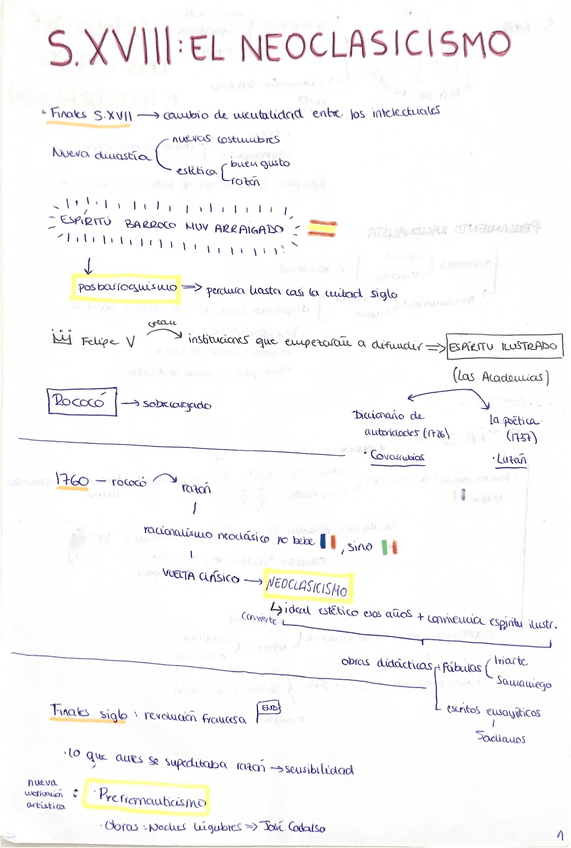 S.XVIII: EL NEOCLASICISMO
Finales S.XVII → cambio de mentalidad entre los intelectuales
Nueva dinastía
nuevas costumbres
estética
buen gusto
razón
ESPÍRITU BARROCO MUY ARRAIGADO
posbarroquismo ⇒ perdura hasta casi la mitad siglo
Felipe V crean instituciones que empezarán a difundir ⇒ ESPÍRITU ILUSTRADO
(Las Academias)
ROCOCÓ → sobrecargado
Diccionario de autoridades (1726)
· Covarrubias
La poética (1737)
· Luzán
1760 – rococó → razón
racionalismo neoclásico no bebe , sino
VUELTA CLÁSICO → NEOCLASICISMO
↳ ideal estético esos años + convivencia espíritu ilustr.
convierte
obras didácticas
fábulas
Iriarte
Samaniego
escritos ensayísticos
Finales siglo: revolución francesa
· lo que antes se supeditaba razón → sensibilidad
nueva motivación artística :
· Prerromanticismo
· Obras: Noches lúgubres ⇒ José Cadalso
1